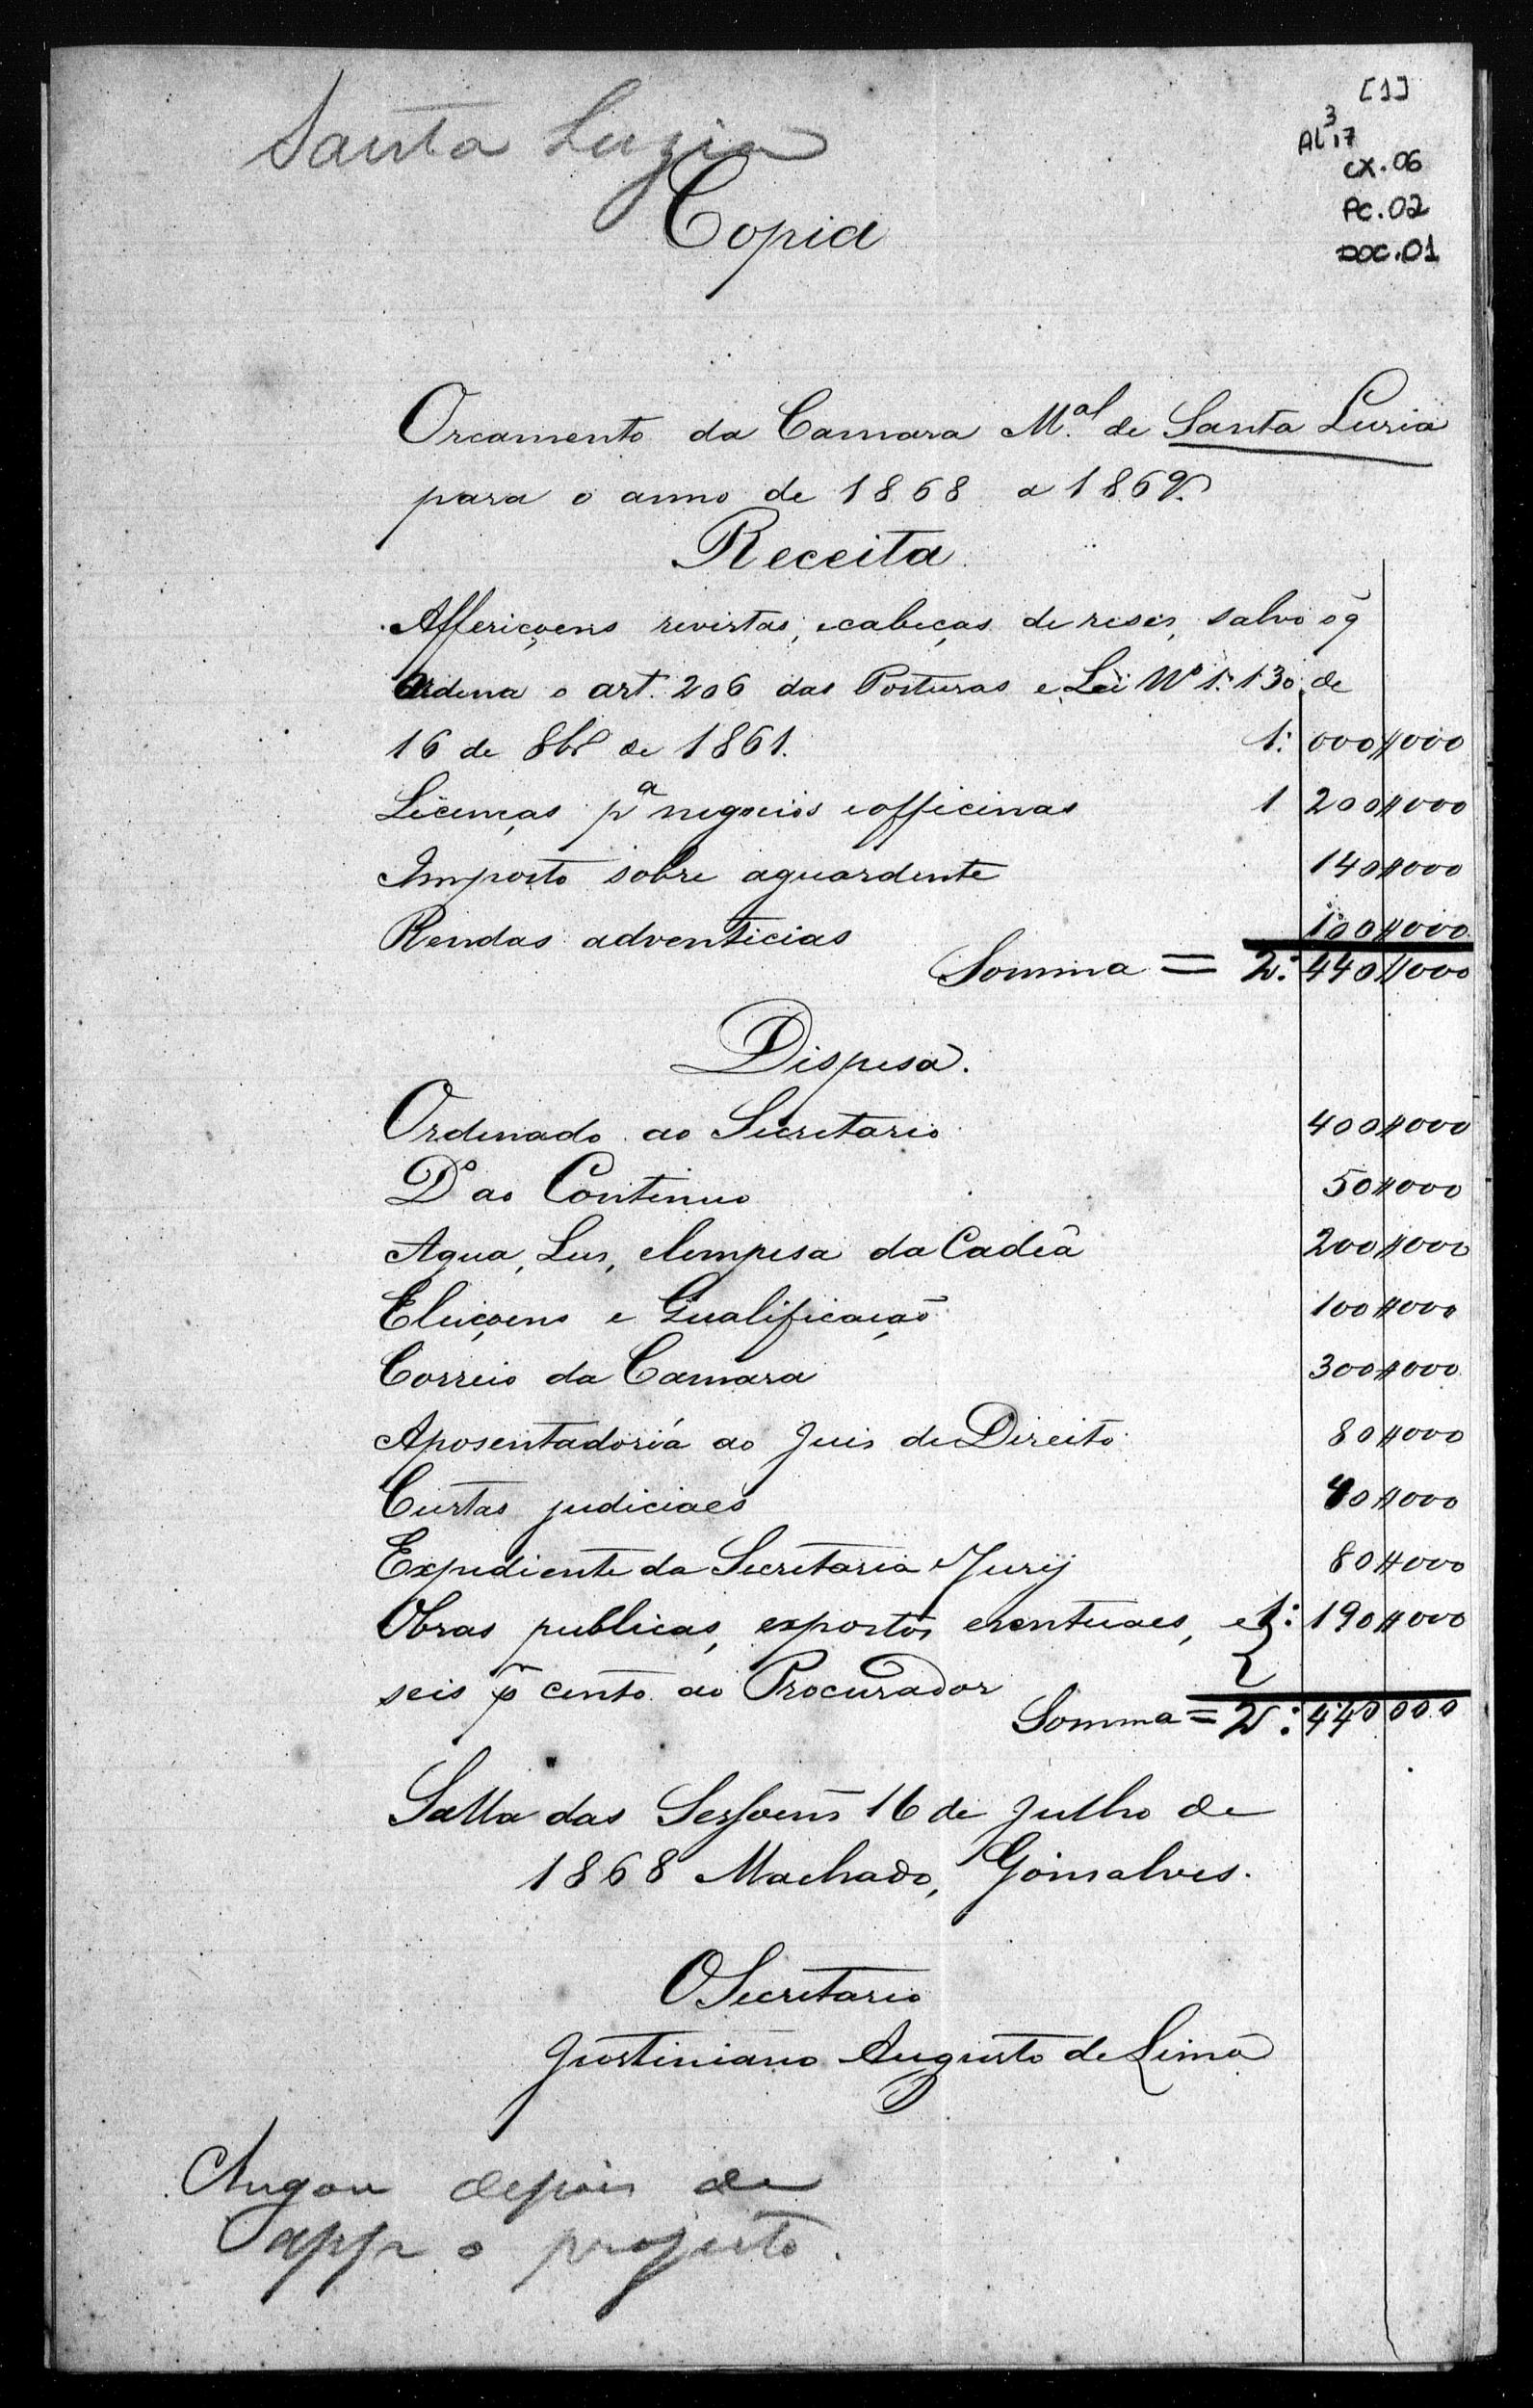 [1]
AL 3 17
CX.06
PC.02
DOC.01
Santa Luzia
Copia
Orcamento da Camara M.al de Santa Lusia
para o anno de 1868 a 1869.
Receita
Affericoens revistas, e cabeças de reses, salvo o q̃
Ordena o art. 206 das Posturas e Lei Nº 1:130, de
16 de 8br de 1861. 1: 000 $000
Licenças pa negocios e officinas 1 200 $000
Imposto sobre aguardente 140 $000
Rendas adventicias 100 $000
Somma = 2: 440 $000
Dispesa.
Ordenado ao Secretario 400 $000
Do ao Continuo 50 $000
Agua, Lus, e limpesa da Cadêa 200 $000
Eleiçoens e Qualificação 100 $000
Correio da Camara 300 $000
Aposentadoria ao Juis de Direito 80 $000
Custas judiciaes 40 $000
Expediente da Secretaria e Jury 80 $000
Obras publicas, expostos eventuaes, e 1: 190 $000
seis p cento ao Procurador
Somma = 2: 440 000
Salla das Sessoens 16 de Julho de
1868 Machado, Gonsalves.
O Secretario
Justiniano Augusto de Lima
Chegou depois de
app o projecto.